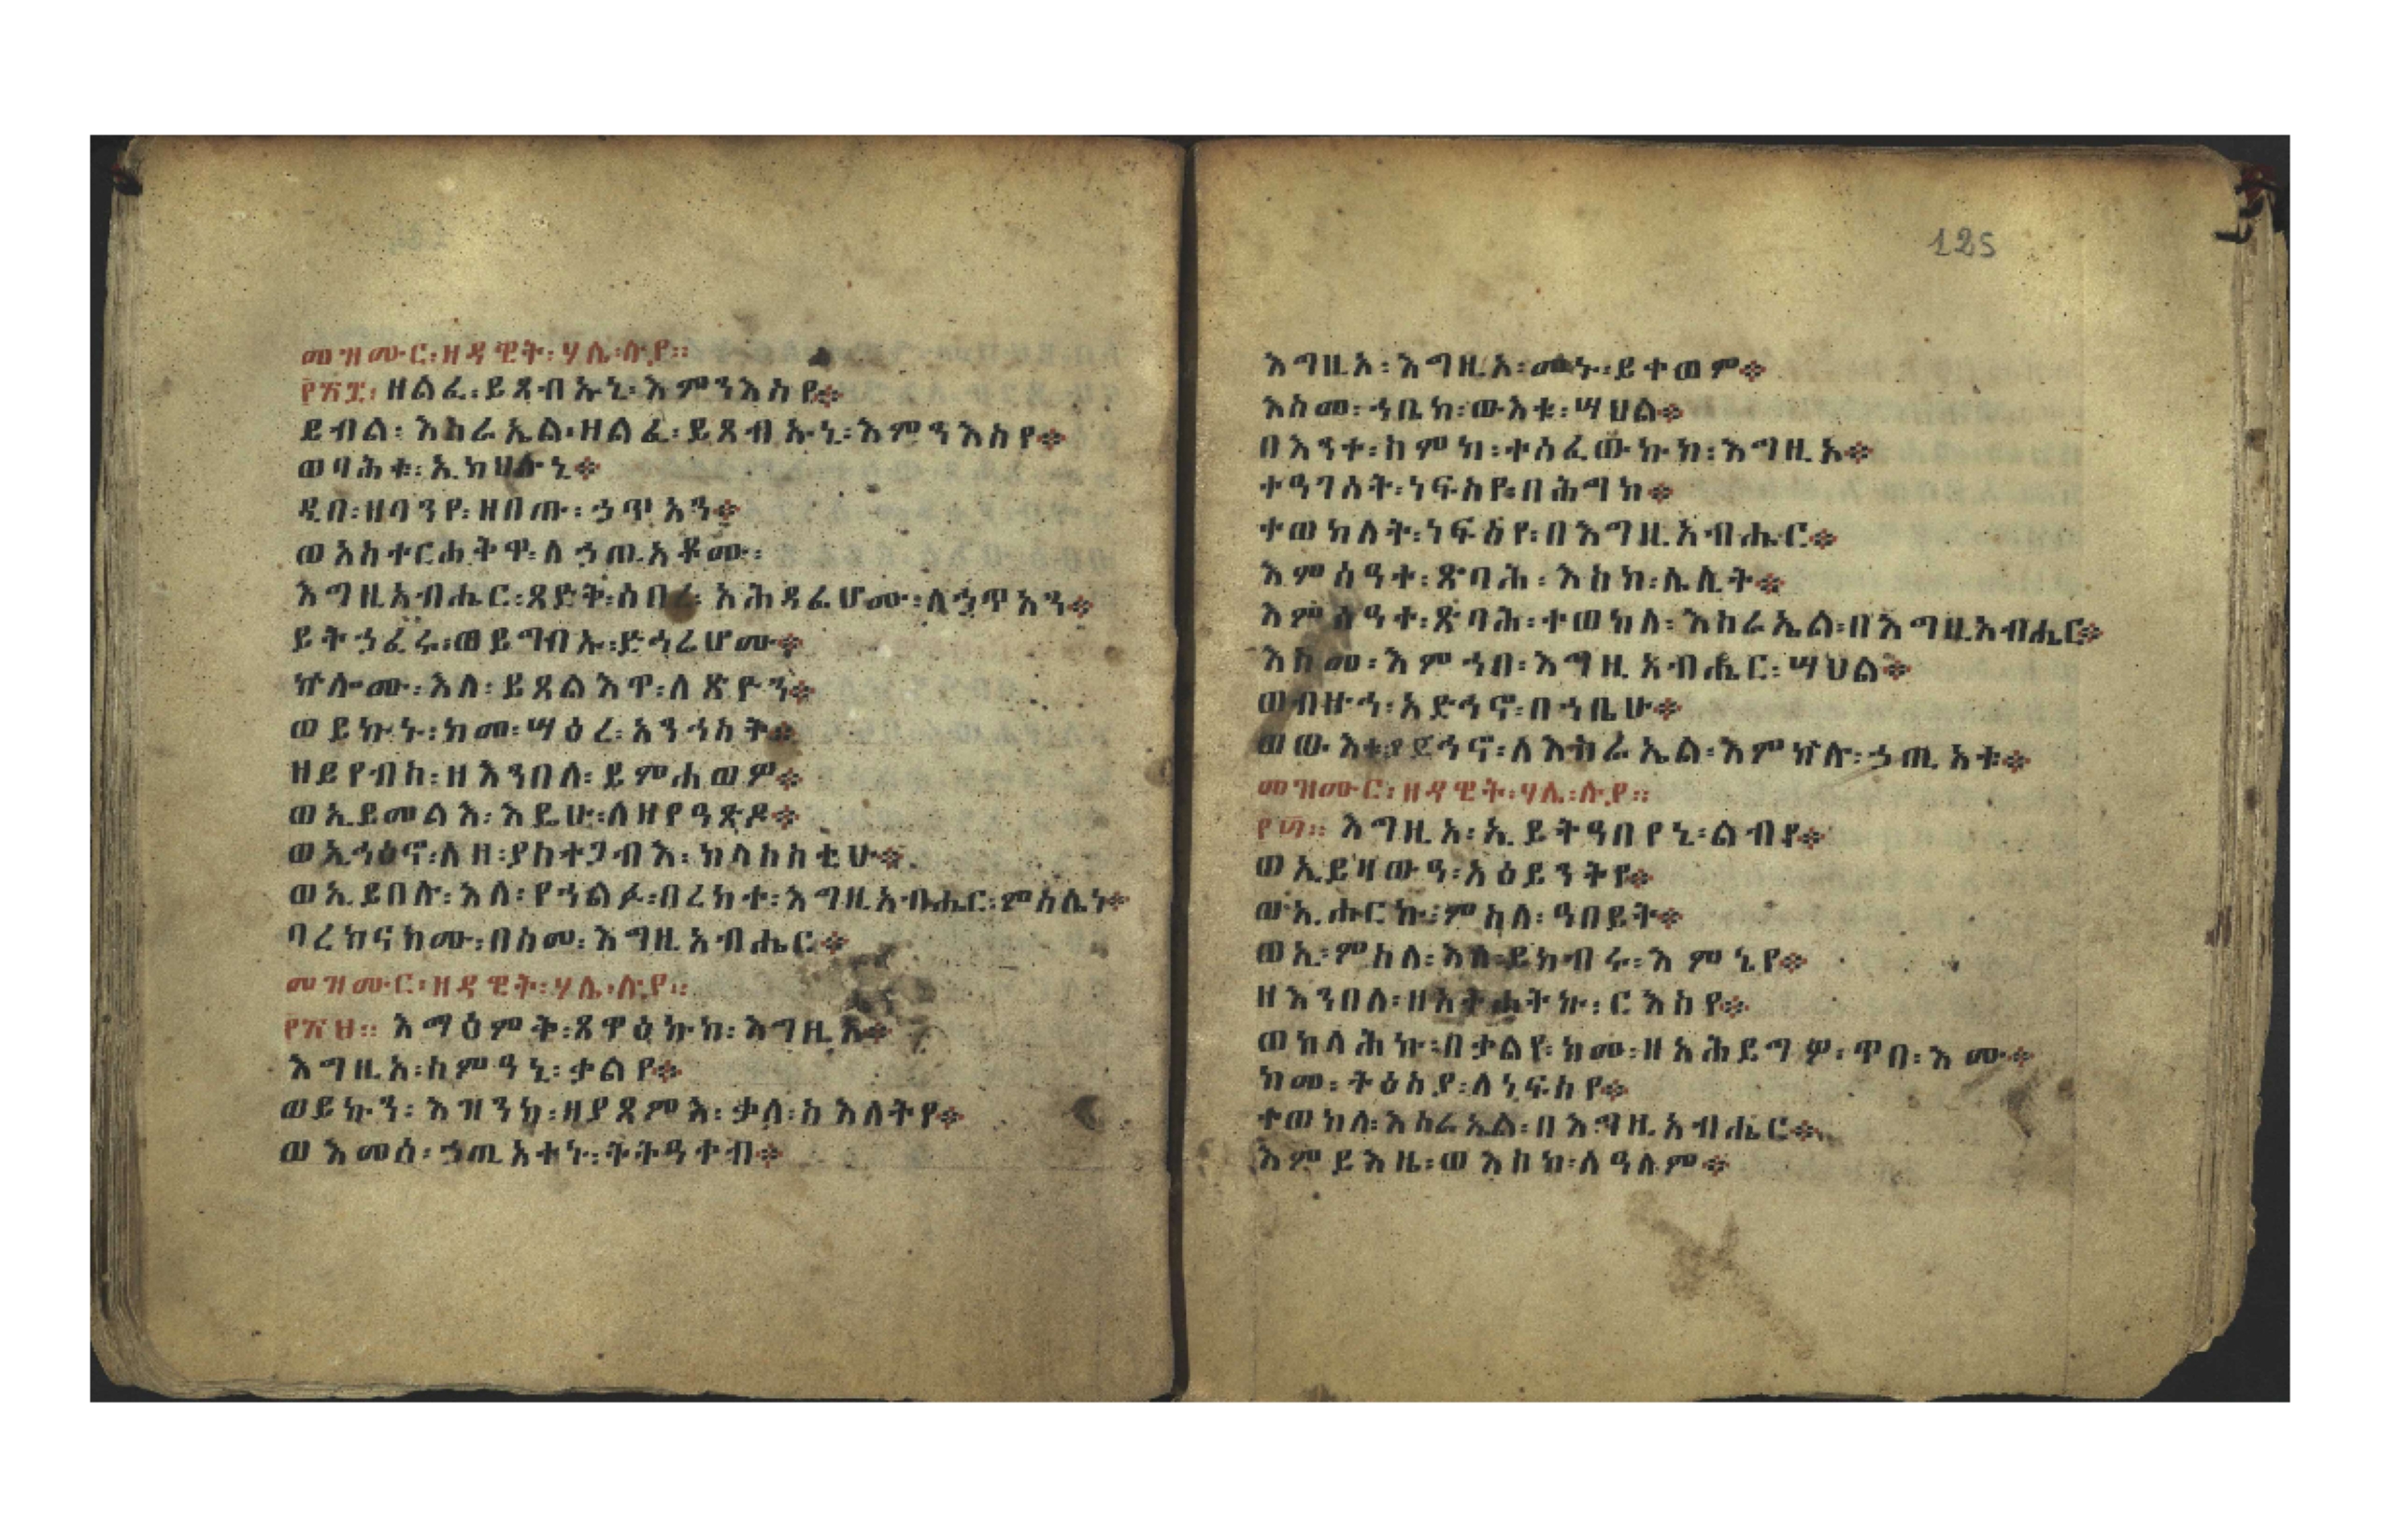 መዝሙር፡ዘዳዊት፡ሃሌ፡ሉያ።
ዘልፈ፡ይጸብኡኒ፡እምንእስየ፨
ይብል፡እስራኤል፡ዘልፈ፡ይጸብኡኒ፡እምንእስየ፨
ወባሕቱ፡ኢክህሉኒ፨
ዲበ፡ዘባንየ፡ዘበጡ፡ኃጥአን፨
ወአስተርሐትዋ፡ለኃጢአቶሙ፡
እግዚአብሔር፡ጻድቅ፡ሰበረ፡አሕዳፊሆሙ፡ለኃጥአን፨
ይትኃፈሩ፡ወይግብኡ፡ድኅሬሆሙ፨
ኵሎሙ፡እለ፡ይጸልእዋ፡ለጽዮን፨
ወይኩኑ፡ከመ፡ሣዕረ፡አንኅስት፨
ዘይየብስ፡ዘእንበለ፡ይምሐወዎ፨
ወኢይመልእ፡እዴሁ፡ለዘየዓጽዶ፨
ወኢኅፅኖ፡ለዘ፡ያስተጋብእ፡ከላስስቲሁ፨
ወኢይበሉ፡እለ፡የኀልፉ፡በረከተ፡እግዚአብሔር፡ምስሌነ፨
ባረክናክሙ፡በስመ፡እግዚአብሔር፨
መዝሙር፡ዘዳዊት፡ሃሌ፡ሉያ።
እማዕምቅ፡ጸዋዕኩከ፡እግዚአ፨
እግዚአ፡ስምዓኒ፡ቃልየ፨
ወይኩን፡እዝንከ፡ዘያጸምእ፡ቃለ፡ስእለትየ፨
ወእመሰ፡ኃጢአተኑ፡ትትዓቀብ፨
እግዚአ፡እግዚአ፡መኑ፡ይቀወም፨
እስመ፡ኀቤከ፡ውእቱ፡ሣህል፨
በእንተ፡ስምከ፡ተሰፈውኩከ፡እግዚአ፨
ተዓገሰት፡ነፍስየ፡በሕግከ፨
ተወከለት፡ነፍስየ፡በእግዚአብሔር፨
እምሰዓተ፡ጽባሕ፡እስከ፡ሌሊት፨
እምሰዓተ፡ጽባሕ፡ተወከለ፡እስራኤል፡በእግዚአብሔር፨
እስመ፡እምኀበ፡እግዚአብሔር፡ሣህል፨
ወብዙኅ፡አድኅኖ፡በኀቤሁ፨
ወውእቱ፡ያድኅኖ፡ለእስራኤል፡እምኵሉ፡ኃጢአቱ፨
መዝሙር፡ዘዳዊት፡ሃሌ፡ሉያ።
እግዚአ፡ኢይትዓበየኒ፡ልብየ፨
ወኢይዛውዓ፡አዕይንትየ፨
ወኢሖርኩ፡ምስለ፡ዓበይት፨
ወኢ፡ምስለ፡እለ፡ይከብሩ፡እምኒየ፨
ዘእንበለ፡ዘአትሐትኩ፡ርእስየ፨
ወከላሕኩ፡በቃልየ፡ከመ፡ዘአሕደግዎ፡ጥበ፡እሙ፨
ከመ፡ትዕስያ፡ለነፍስየ፨
ተወከለ፡እስራኤል፡በእግዚአብሔር፨
እምይእዜ፡ወእስከ፡ለዓለም፨
125